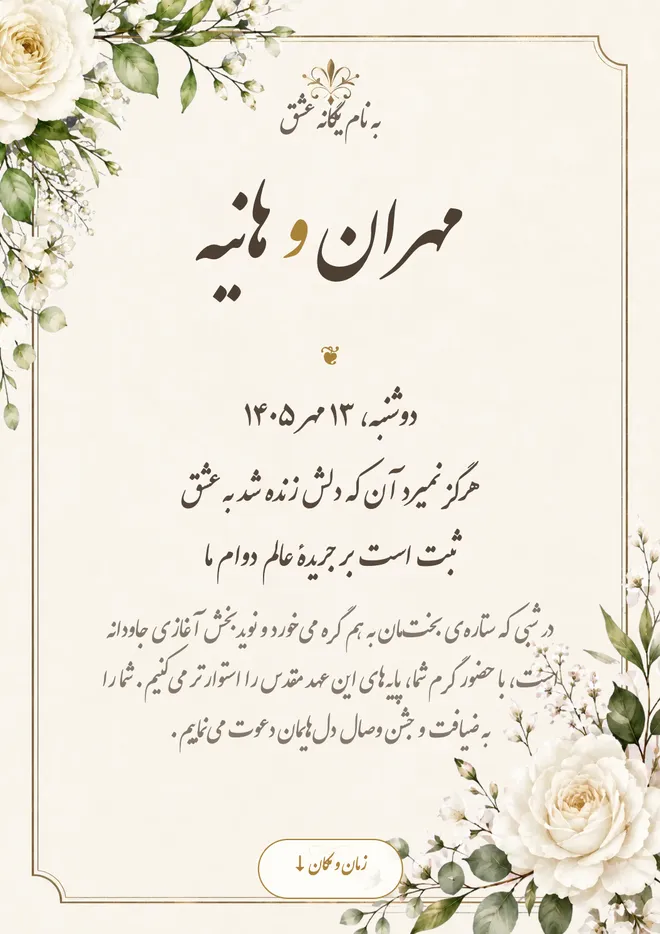 به نام یگانه عشق
مهران و هانیه
دوشنبه، ۱۳ مهر ۱۴۰۵
هرگز نمیرد آن که دلش زنده شد به عشق
ثبت است بر جریدهٔ عالم دوام ما
در شبی که ستاره‌ی بخت‌مان به هم گره می‌خورد و نویدبخش آغازی جاودانه
است، با حضور گرم شما، پایه‌های این عهد مقدس را استوارتر می‌کنیم. شما را
به ضیافت و جشن وصال دل‌هایمان دعوت می‌نماییم.
زمان و مکان ↓